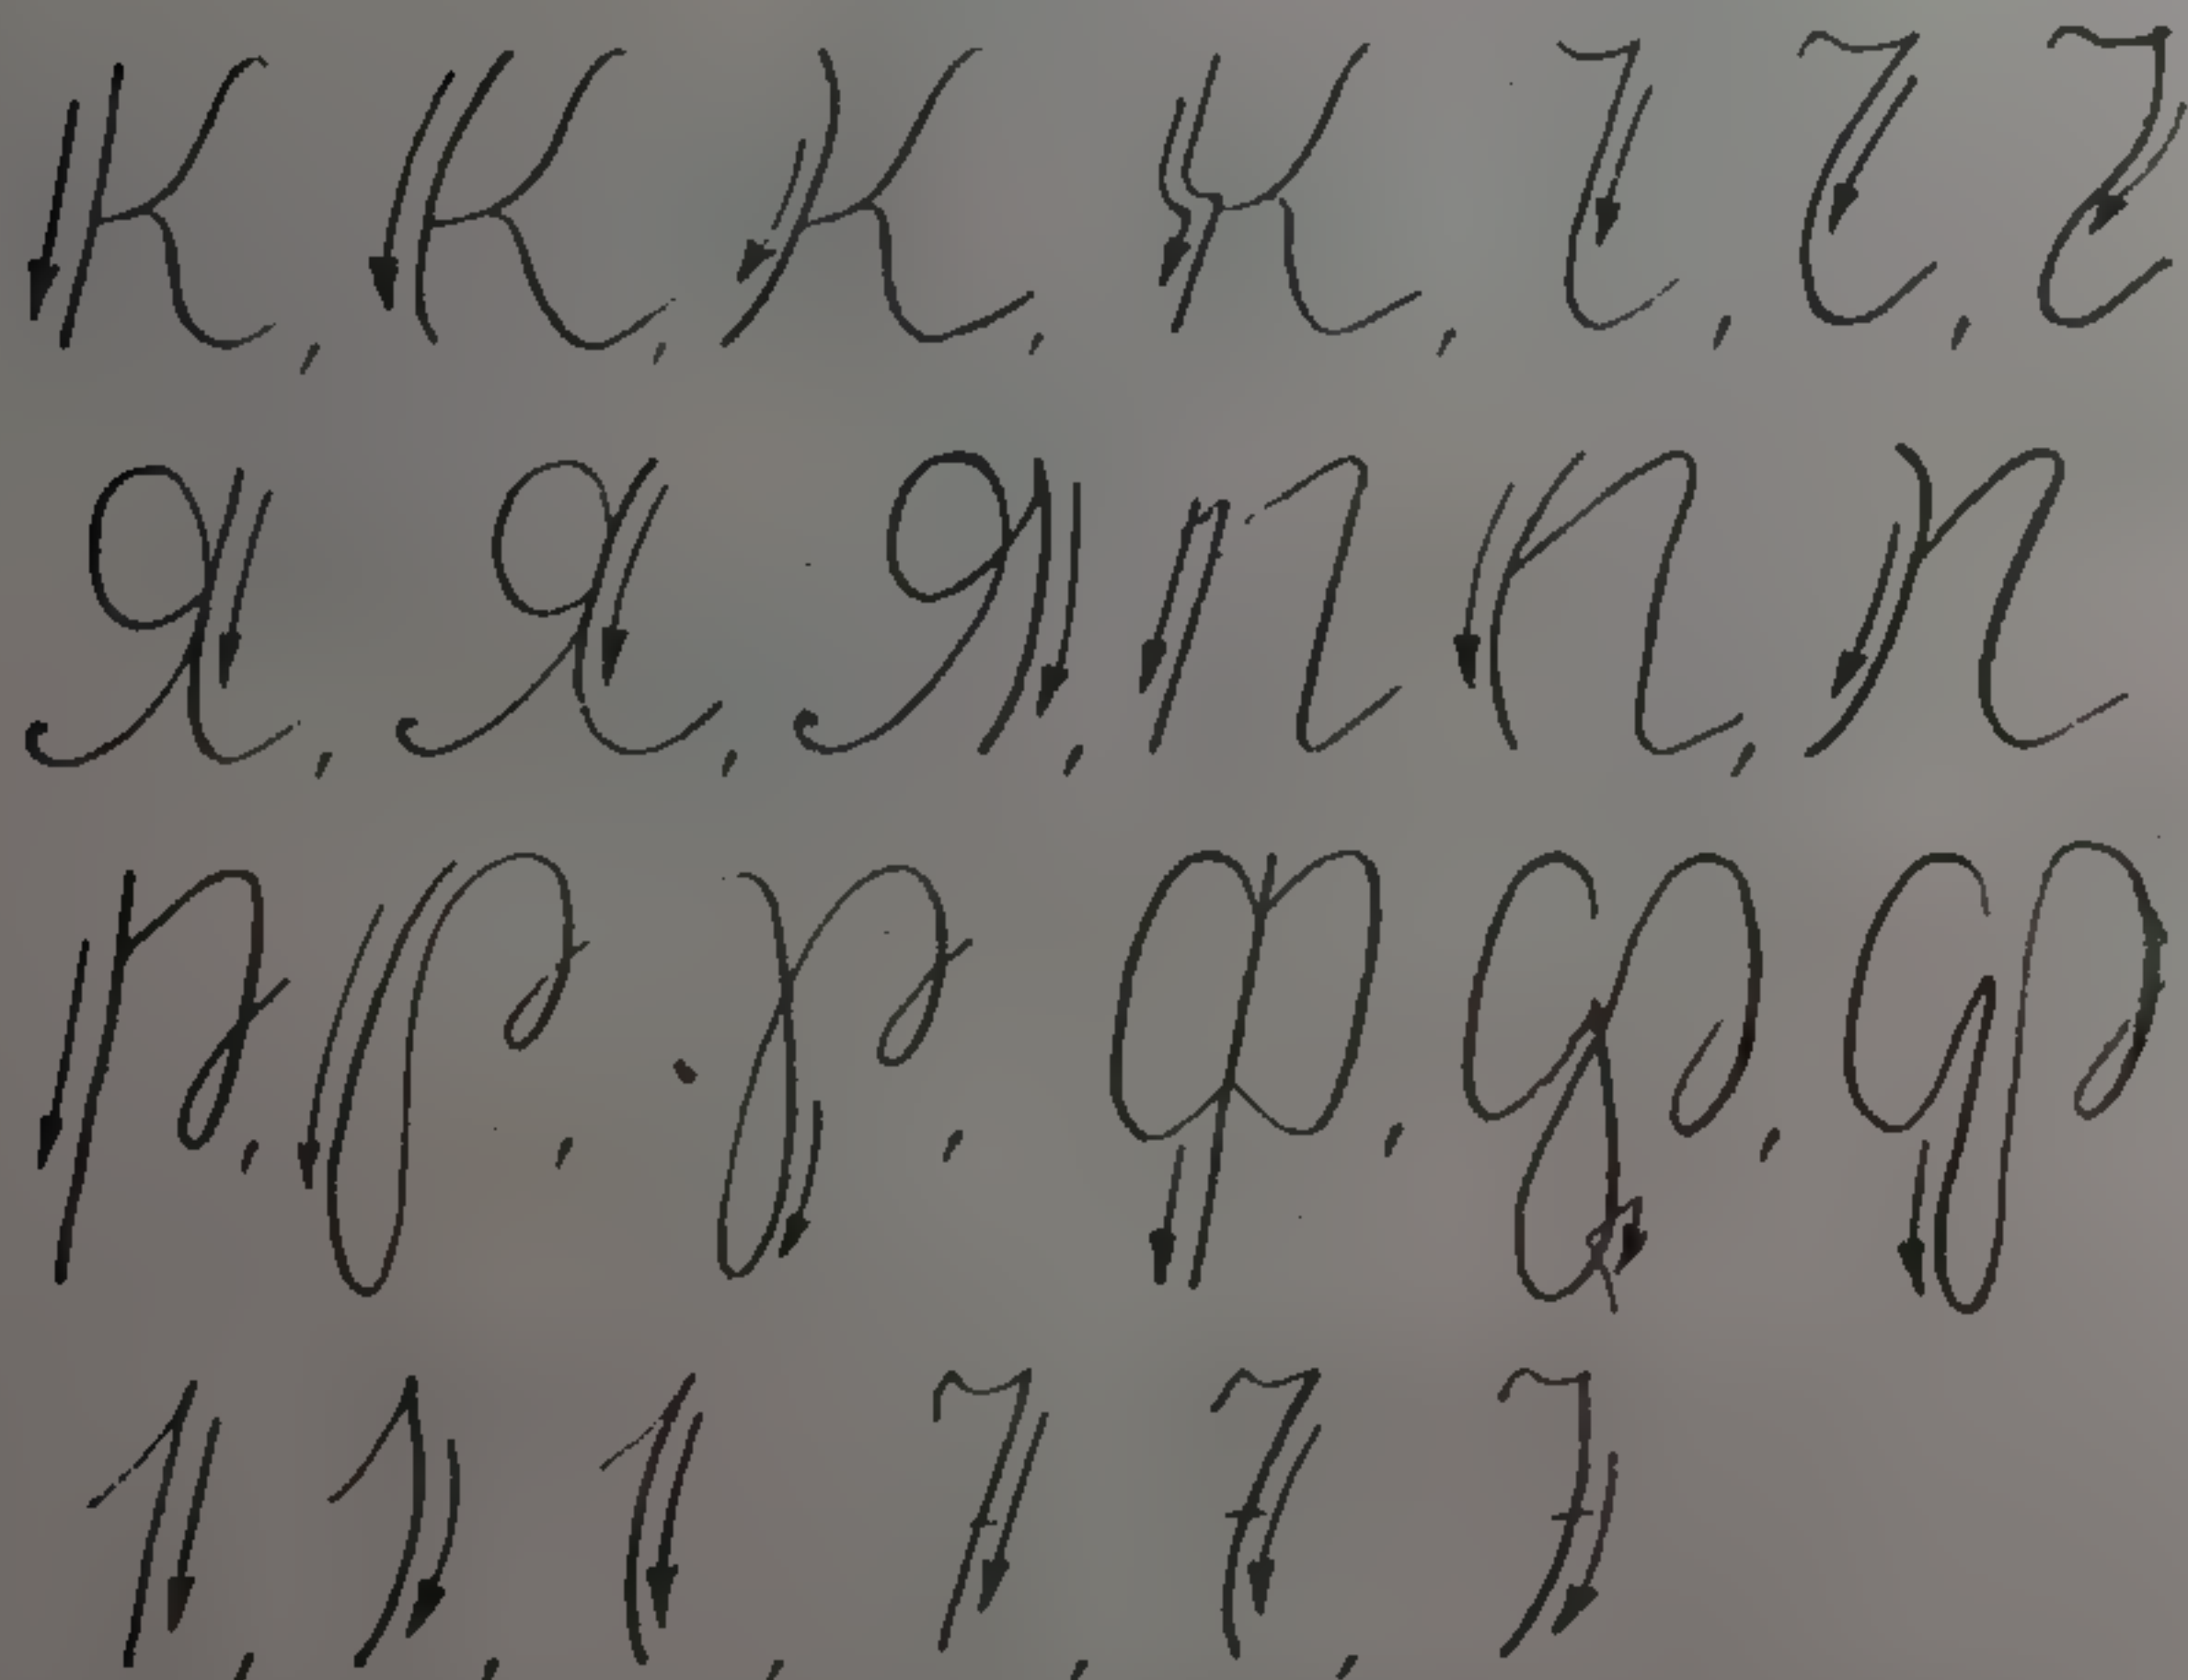 К, К, К, К, ч, ч, ч
Я, Я, Я, п п, п
р, р, р, ф, ф, ф
1, 1, 1, 7, 7, 7